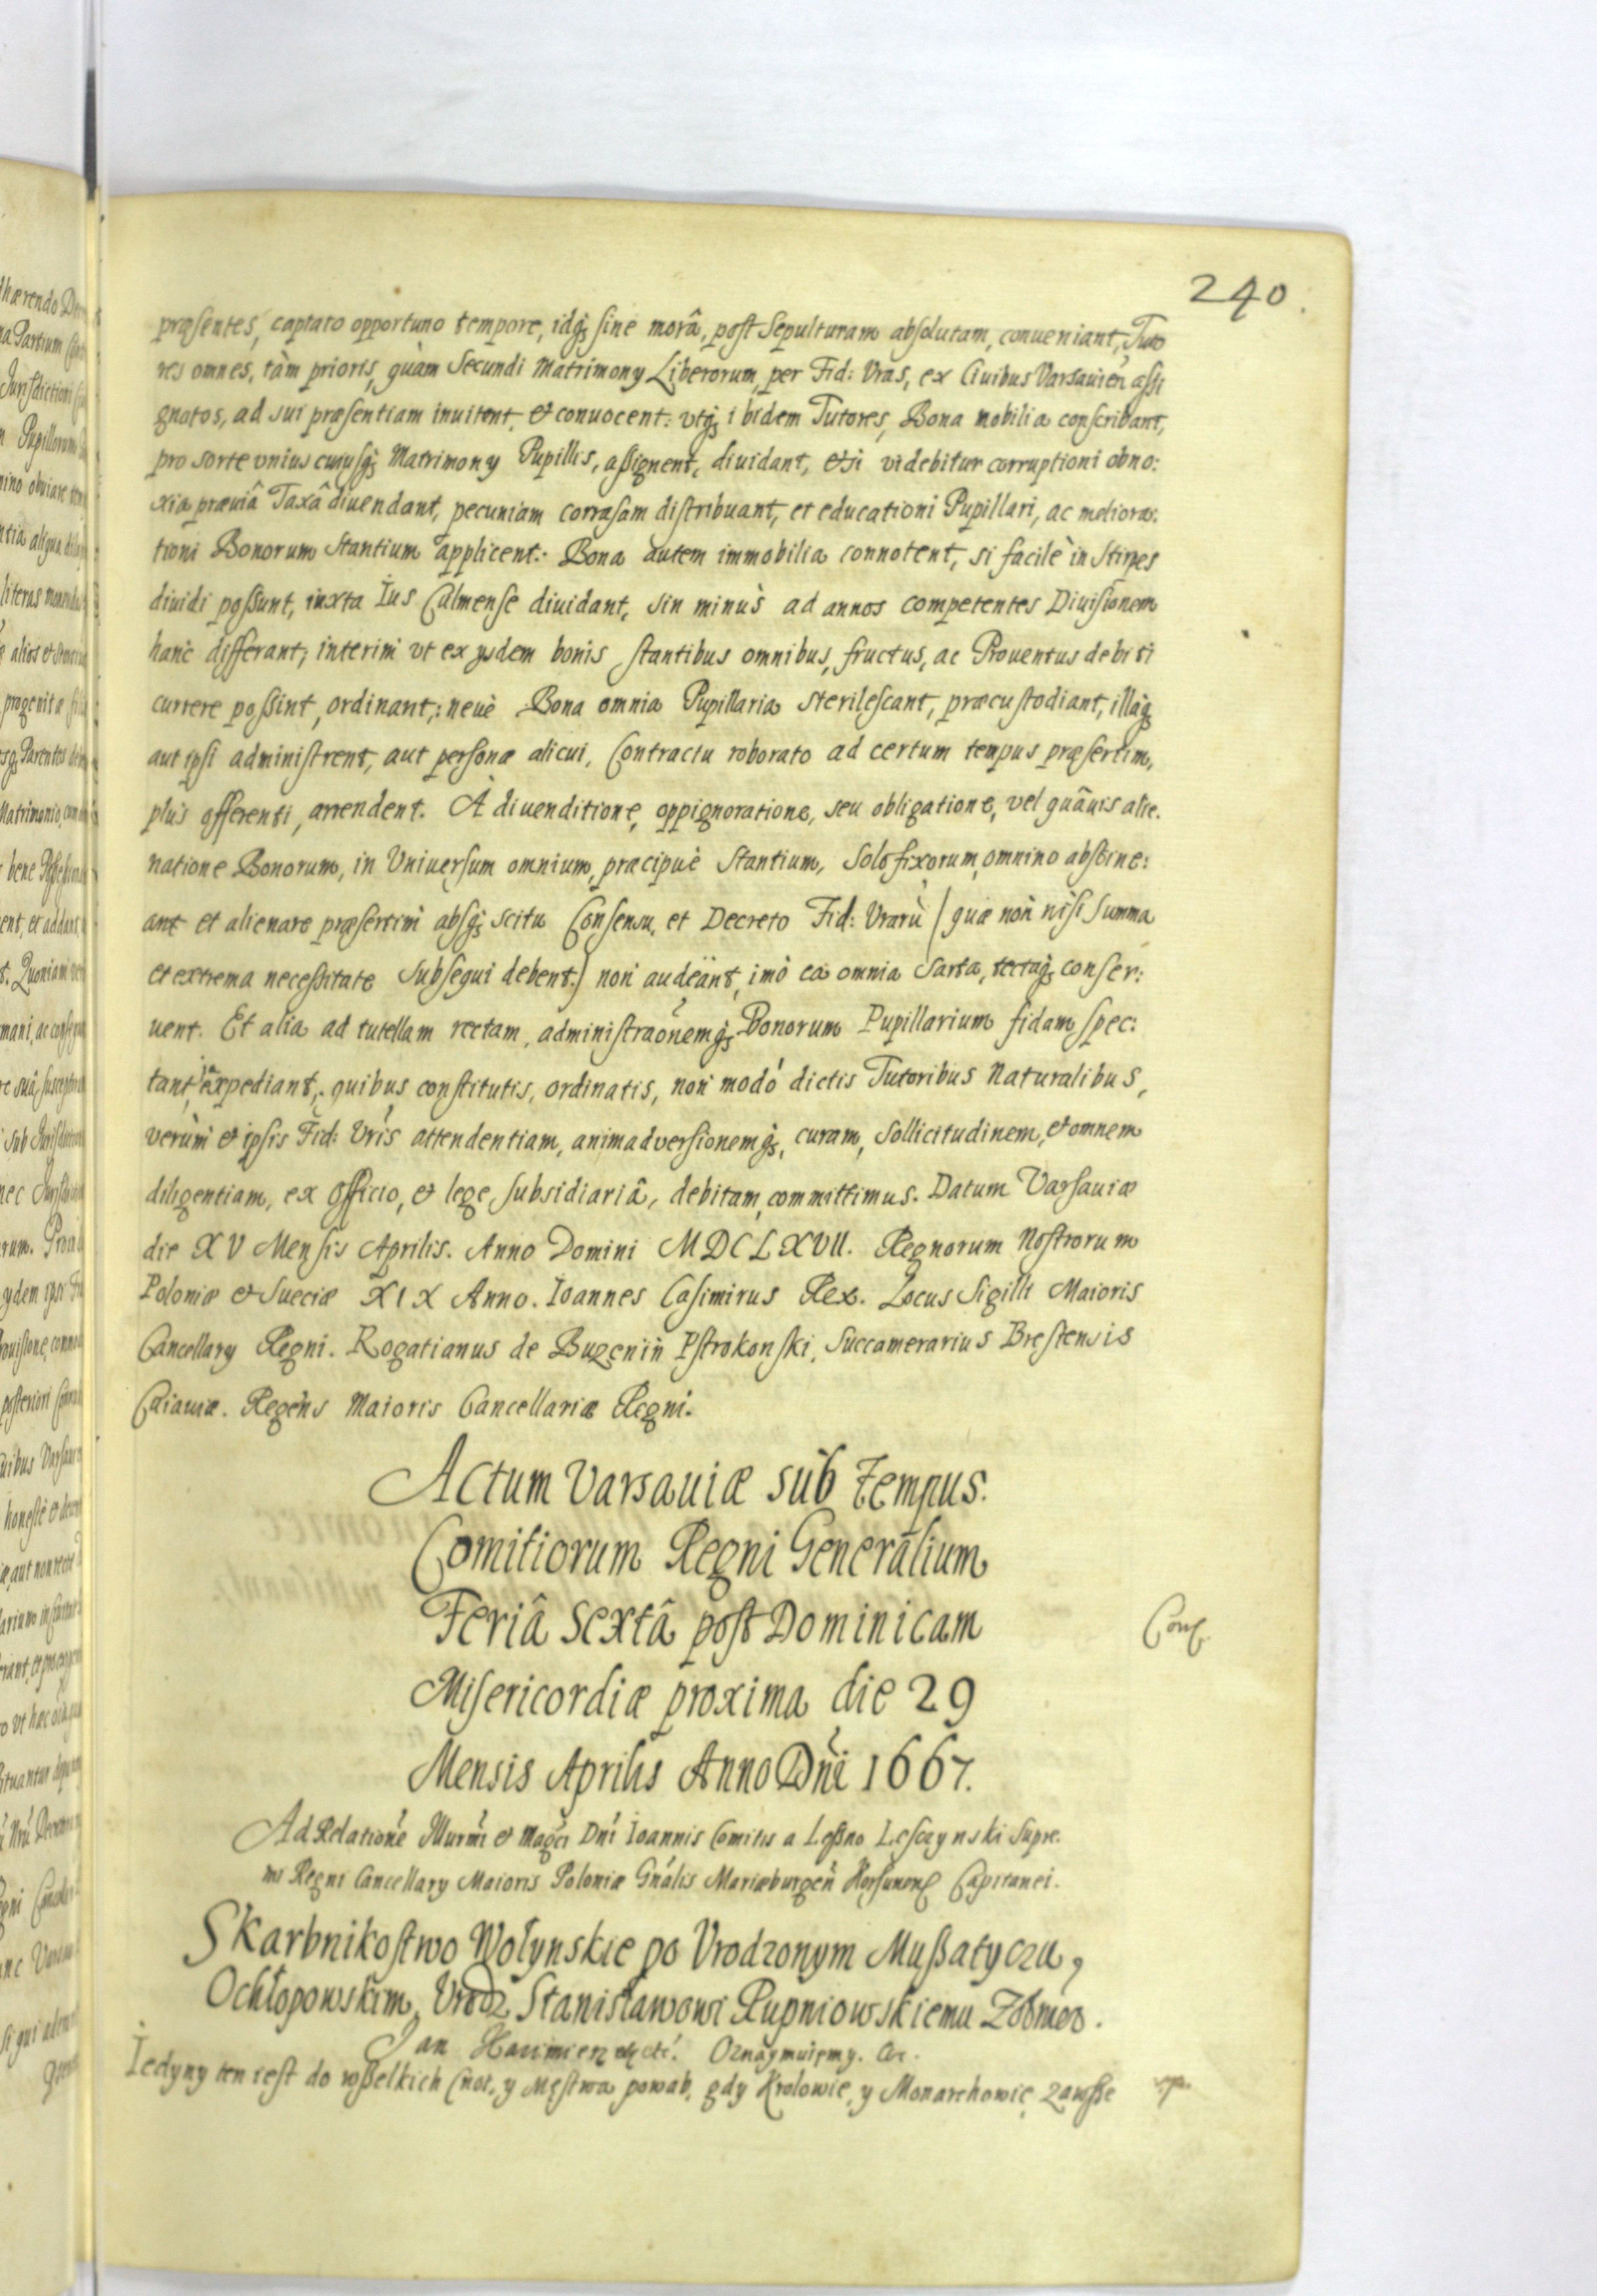 240.
præsentes, captato opportuno tempore, idq; sine morâ, post Sepulturam absolutam, conueniant, Tuto
res omnes, tàm prioris, quàm Secundi Matrimony Liberorum, per Fid: Vras, ex Ciuibus Varsauien assi
gnatos, ad sui præsentiam inuitent, et conuocent: vtq; ibidem Tutores, Bona mobilia conscribant,
pro sorte vnius cuiusq; Matrimony Pupillis, assignent, diuidant, etsi videbitur corruptioni obno:
xia præuiâ Taxâ diuendant, pecuniam corrasam distribuant, et educationi Pupillari, ac meliora:
tioni Bonorum Stantium applicent: Bona autem immobilia connotent, si facilè in Stirpes
diuidi possunt, iuxta Ius Culmense diuidant, sin minùs ad annos competentes Diuisionem
hanc differant, interim vt ex ysdem bonis stantibus omnibus, fructus, ac Prouentus debiti
currere possint, ordinant,: neuè Bona omnia Pupillaria sterilescant, præcustodiant, illaq;
aut ipsi administrent, aut personæ alicui, Contractu roborato ad certum tempus præsertim,
plùs offerenti, arrendent. À diuenditione, oppignoratione, seu obligatione, vel quâuis alie.
natione Bonorum, in Vniuersum omnium, præcipuè Stantium, Solo fixorum, omnino abstine:
ant et alienare præsertim absq; scitu Consensu, et Decreto Fid: Vrarù (quæ non nisi summa
et extrema necessitate subsequi debent.) non audeant, imò ea omnia Sarta, tectaq; conser:
uent. Et alia ad tutellam rectam, administraonemq; Bonorum Pupillarium fidam spec:
tantia, expediant,: quibus constitutis, ordinatis, non modò dictis Tutoribus Naturalibus,
verùm et ipsis Fid: Vris attendentiam, animadversionemq;, curam, sollicitudinem, et omnem
diligentiam, ex officio, et lege, subsidiariâ, debitam, committimus. Datum Varsauiæ
die XV Mensis Aprilis. Anno Domini MDCLXVII. Regnorum Nostrorum
Poloniæ et Sueciæ XIX Anno. Ioannes Casimirus Rex. Locus Sigilli Maioris
Cancellary Regni. Rogatianus de Buzenin Pstrokonski, Succamerarius Brestensis
Cuiauiæ. Regens Maioris Cancellariæ Regni.
Actum Varsauiæ sub tempus
Comitiorum Regni Generalium
Feriâ Sextâ post Dominicam
Conf.
Misericordiæ proxima die 29
Mensis Aprilis Anno Dni 1667.
Ad Relatione Illurmi et Magci Dni Ioannis Comitis a Leßno Lesczynski Supre.
mi Regni Cancellary Maioris Poloniæ Gnalis Mariæburgen Korsunens Capitanei.
Skarbnikostwo Wołynskie po Vrodzonym Mußatyczu,
Ochłopowskim, Vrodz Stanisławowi Rupniowskiemu
Jan Oznaymuięmy. etc.
Iedyny ten iest do wßelkich Cnot, y Męstwa powab, gdy Krolowie, y Monarchowie, zawße